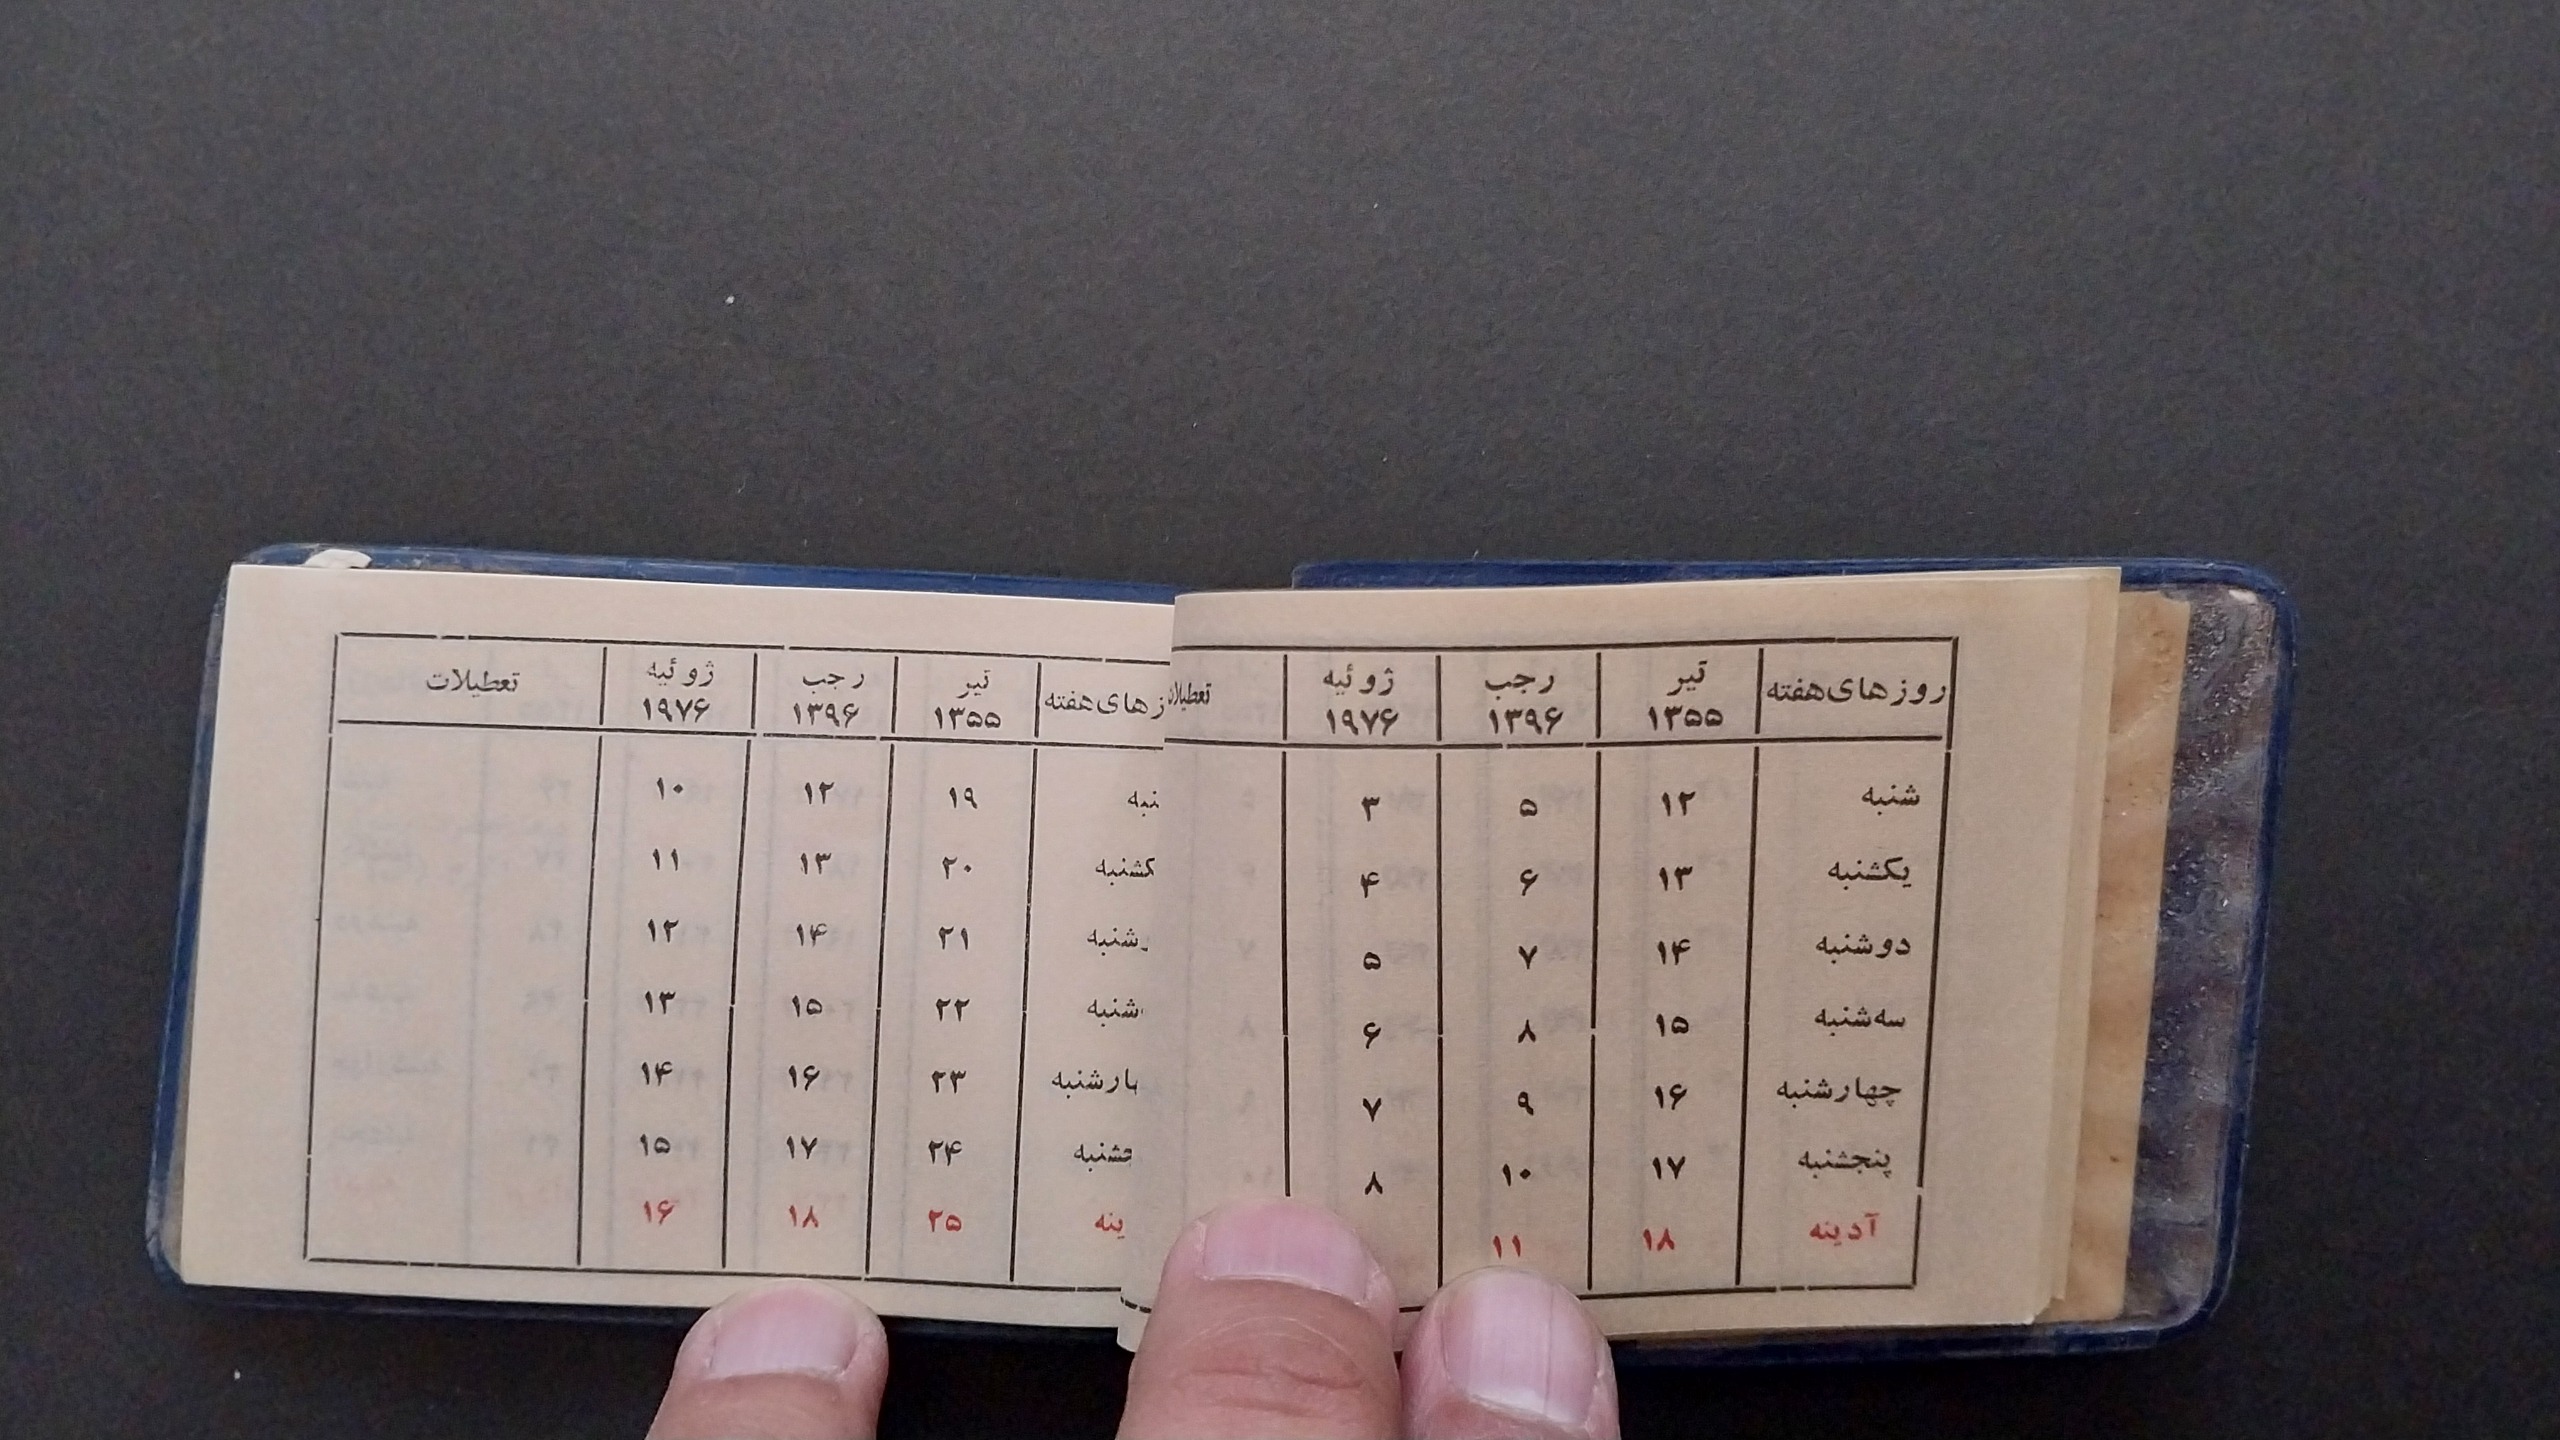 روزهای هفته تیر ۱۳۵۵ رجب ۱۳۹۶ ژوئیه ۱۹۷۶
شنبه ۱۲ ۵ ۳
یکشنبه ۱۳ ۶ ۴
دوشنبه ۱۴ ۷ ۵
سه‌شنبه ۱۵ ۸ ۶
چهارشنبه ۱۶ ۹ ۷
پنجشنبه ۱۷ ۱۰ ۸
آدینه ۱۸ ۱۱
تیر ۱۳۵۵ رجب ۱۳۹۶ ژوئیه ۱۹۷۶ تعطیلات
۱۹ ۱۲ ۱۰
۲۰ ۱۳ ۱۱
۲۱ ۱۴ ۱۲
۲۲ ۱۵ ۱۳
۲۳ ۱۶ ۱۴
۲۴ ۱۷ ۱۵
۲۵ ۱۸ ۱۶